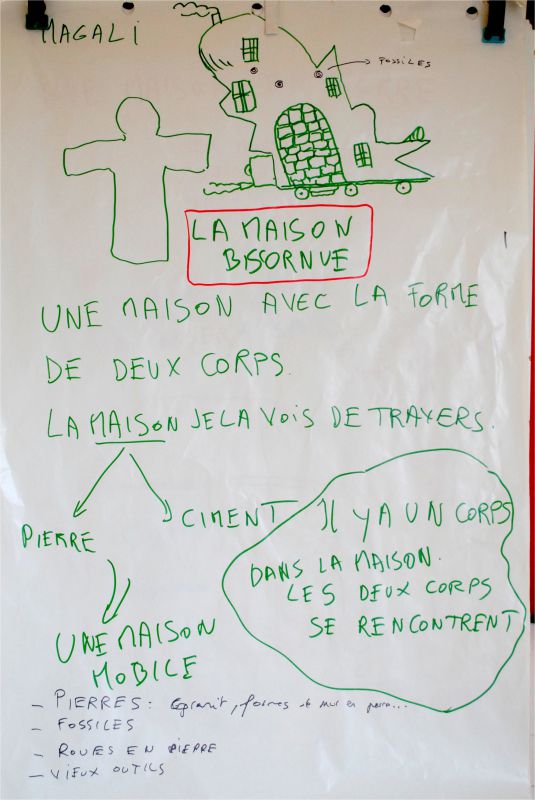 MAGALI
FOSSILES
LA MAISON
BISCORNUE
UNE MAISON AVEC LA FORME
DE DEUX CORPS.
LA MAISON JE LA VOIS DE TRAVERS.
PIERRE
CIMENT
IL Y A UN CORPS
DANS LA MAISON.
LES DEUX CORPS
SE RENCONTRENT
UNE MAISON
MOBILE
- PIERRES : granit, formes et mur en
- FOSSILES
- ROUES EN PIERRE
- VIEUX OUTILS